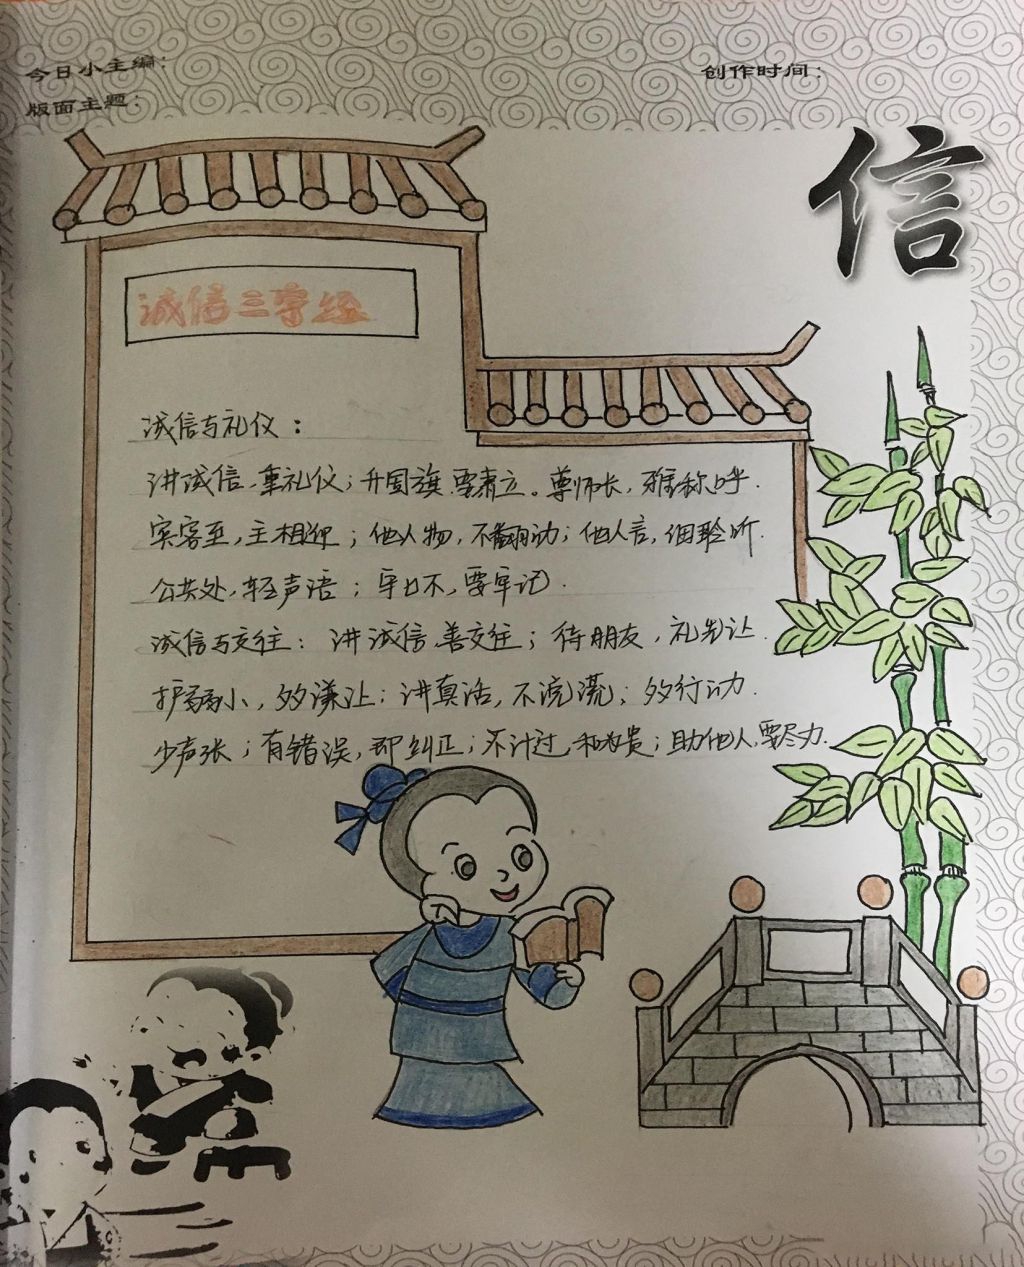 今日小主编：
创作时间：
版面主题：
信
诚信三字经
诚信与礼仪：
讲诚信，重礼仪；升国旗，要肃立。尊师长，雅称呼.
宾客至，主相迎；他人物，不翻动；他人言，细聆听.
公共处，轻声语；牢记.
诚信与交往：讲诚信，善交往；待朋友，礼先让.
护弱小，效谦让；讲真话，不流荒；效行动.
少声张；有错误，即纠正；不计过，和为贵；助他人，要尽力.